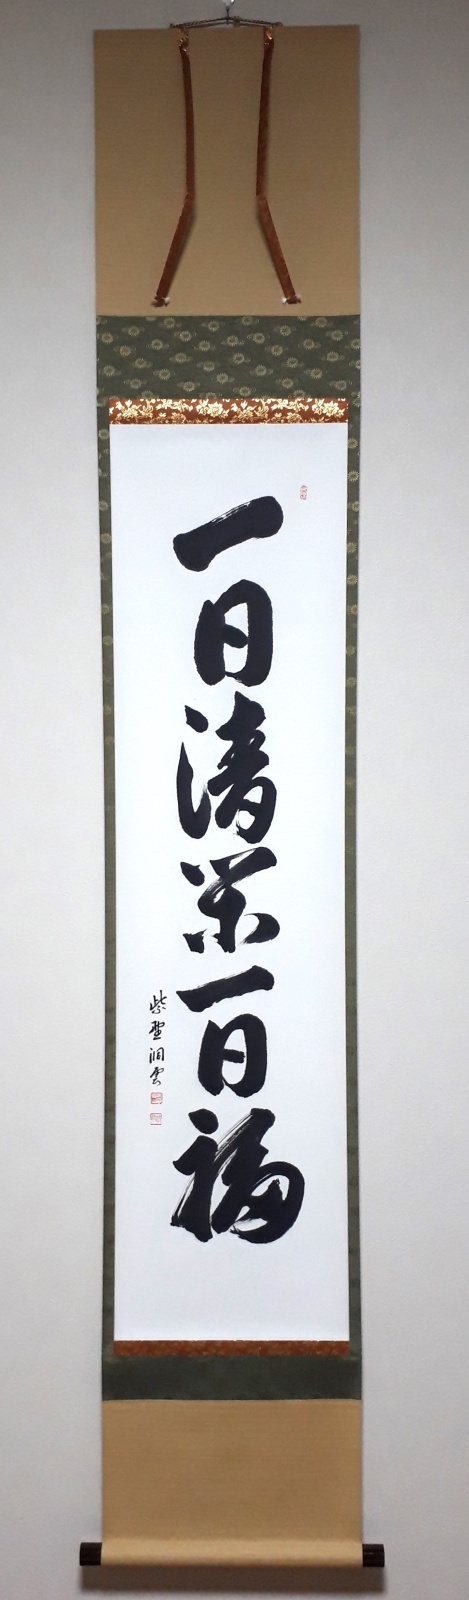 一日清栄一日福
紫野洞雲